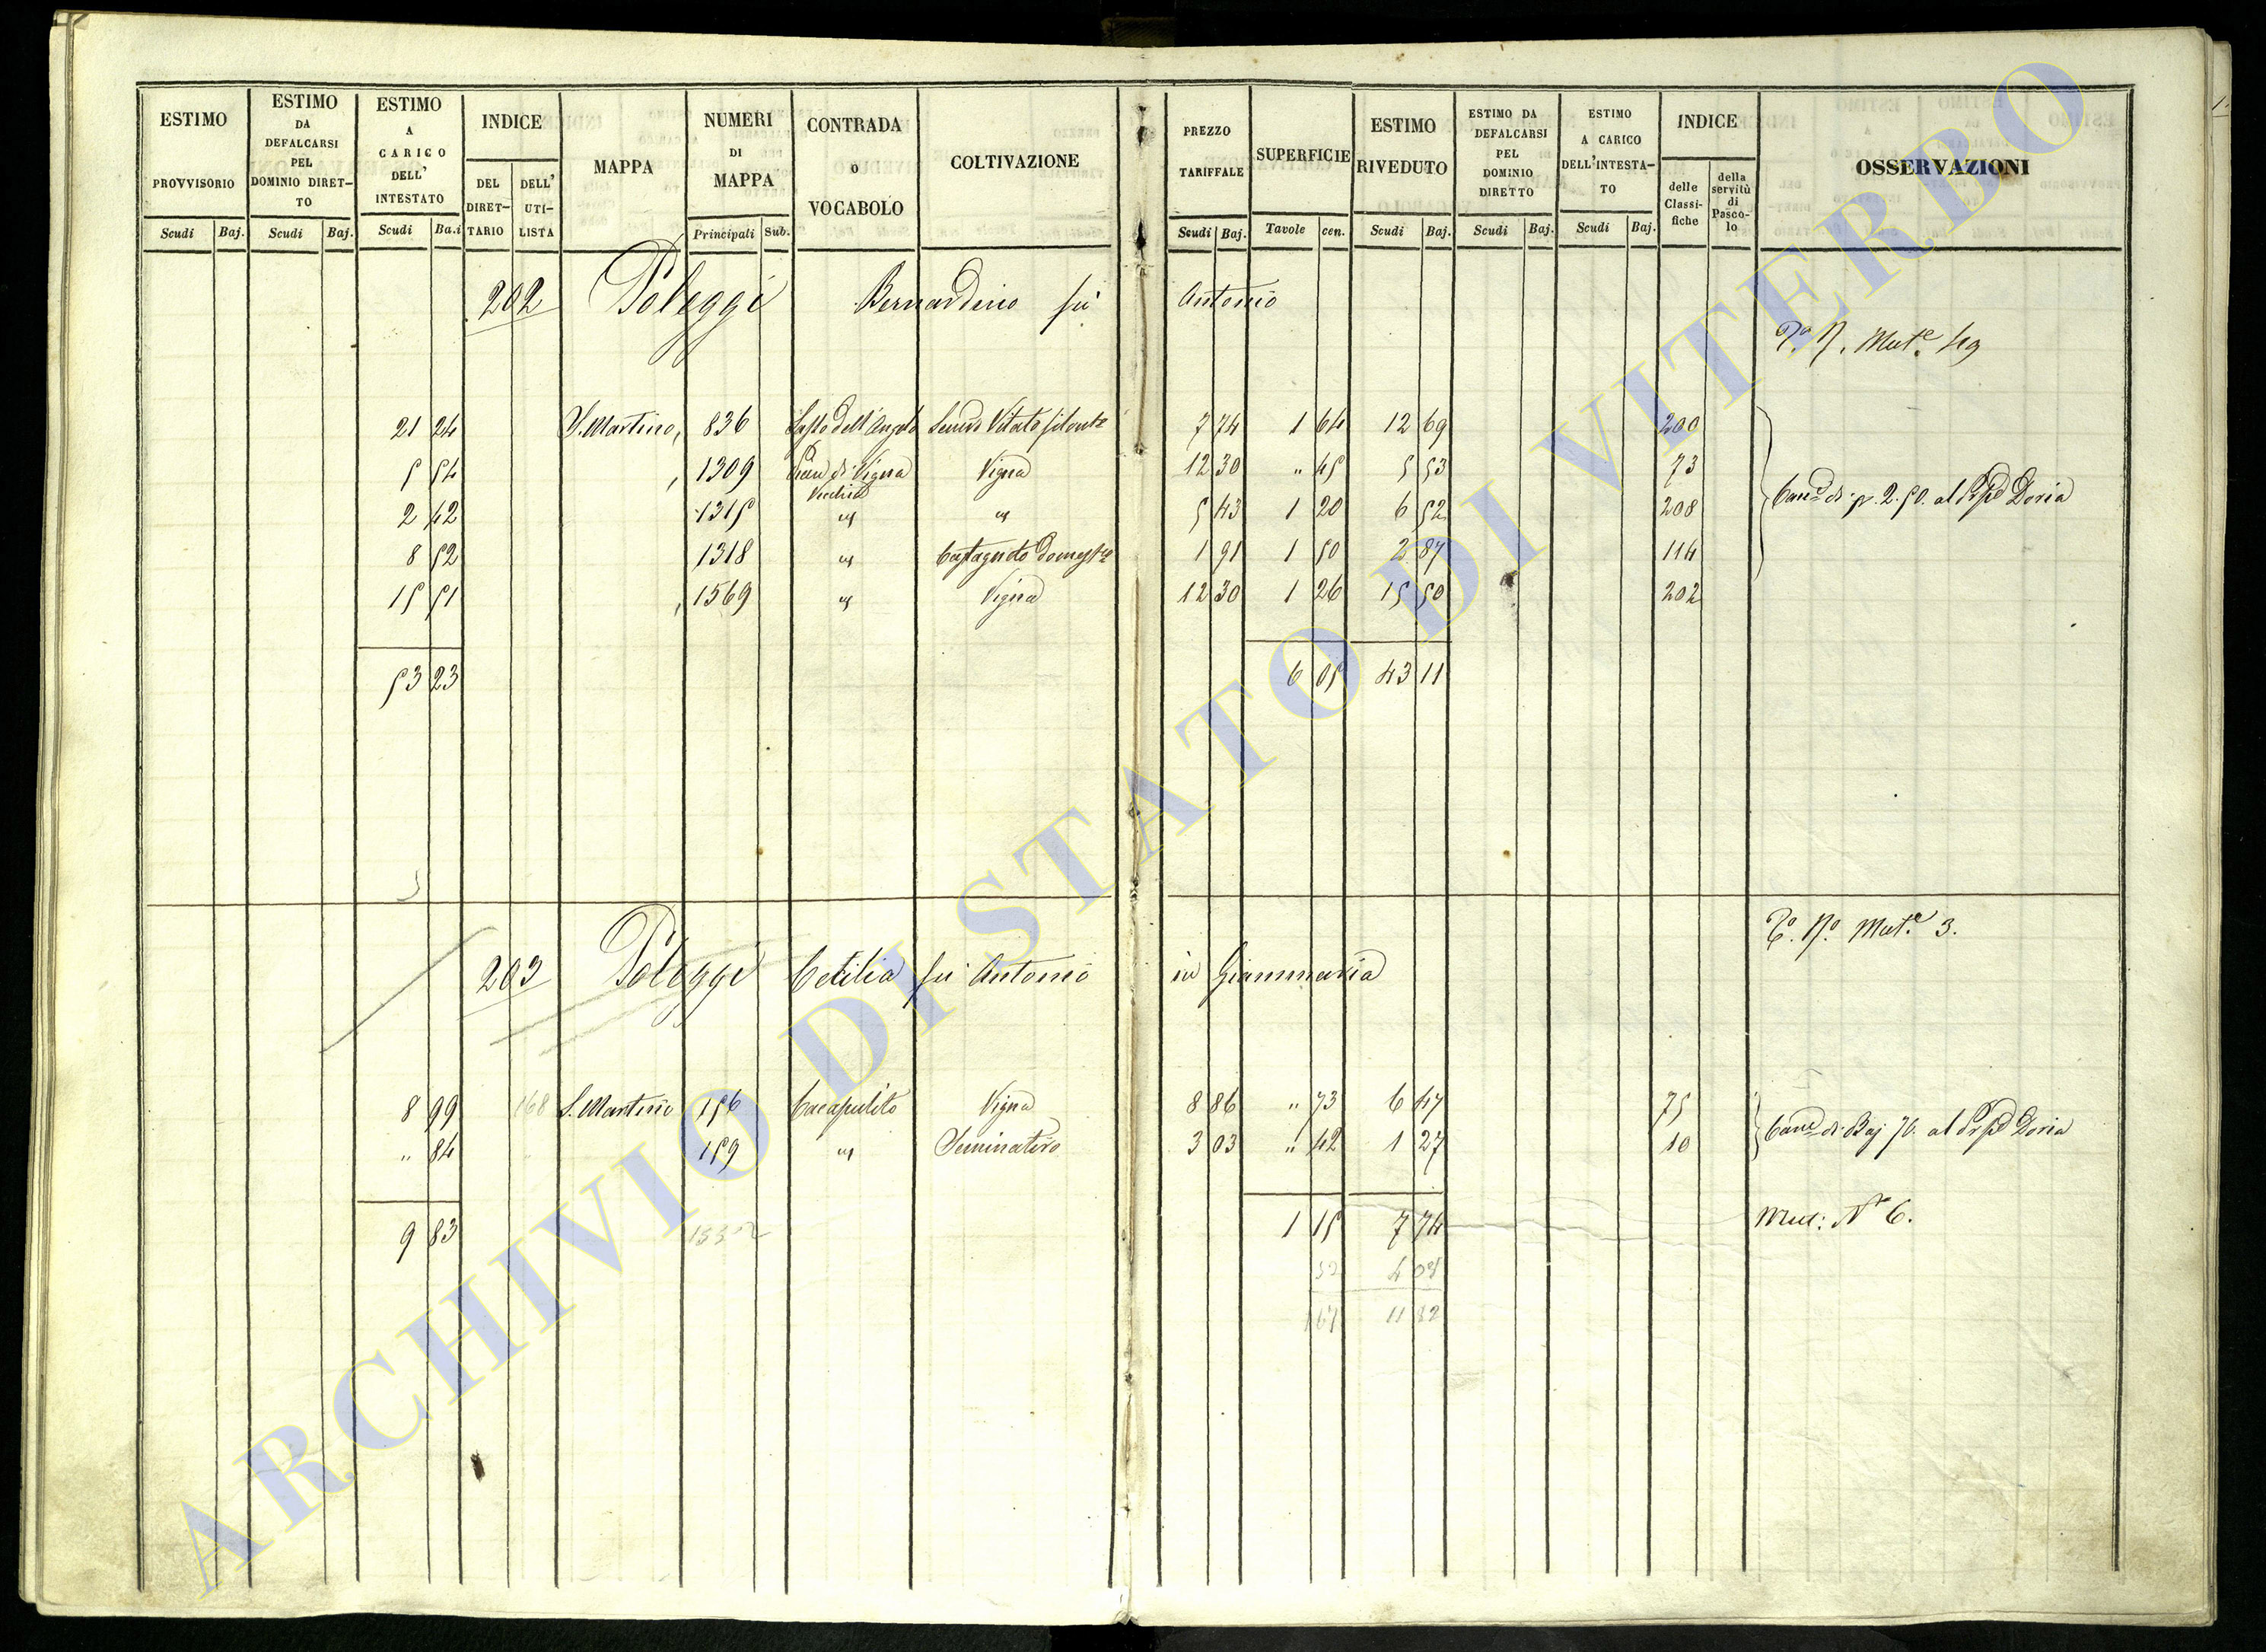 ESTIMO PROVVISORIO Scudi Baj.
ESTIMO DA DEFALCARSI PEL DOMINIO DIRET-TO Scudi Baj.
ESTIMO A CARICO DELL' INTESTATO Scudi Ba.i
INDICE DEL DIRET-TARIO DELL' UTI-LISTA
MAPPA
NUMERI DI MAPPA Principali Sub.
CONTRADA O VOCABOLO
COLTIVAZIONE
PREZZO TARIFFALE Scudi Baj.
SUPERFICIE Tavole cen.
ESTIMO RIVEDUTO Scudi Baj.
ESTIMO DA DEFALCARSI PEL DOMINIO DIRETTO Scudi Baj.
ESTIMO A CARICO DELL'INTESTA-TO Scudi Baj.
INDICE delle Classi-fiche della servitù di Pasco-lo
OSSERVAZIONI
202 Poleggi Bernardino fu Antonio
Mut.e 49
21 24 S. Martino, 836 Sasso dell'Angolo Semvo Vitato 7 74 1 64 12 69 200
5 54 , 1309 Pian di Vigna Vecchia Vigna 12 30 " 45 5 53 73
2 42 1315 " " 5 43 1 20 6 52 208
8 52 1318 " Castagneto Domest.e 1 91 1 50 2 87 114
15 51 , 1569 " Vigna 12 30 1 26 15 50 202
di 2.50. al Doria
53 23 6 05 43 11
Mut.e 3.
203 Poleggi Cecilia fu Antonio in Giammaria
8 99 168 S. Martino 156 Cacapulito Vigna 8 86 " 73 6 47 75
" 84 159 " Seminativo 3 03 " 42 1 27 10
di Baj 70. al Doria
9 83 1 15 7 74
Mut: N° 6.
52 4 08
167 11 82
ARCHIVIO DI STATO DI VITERBO